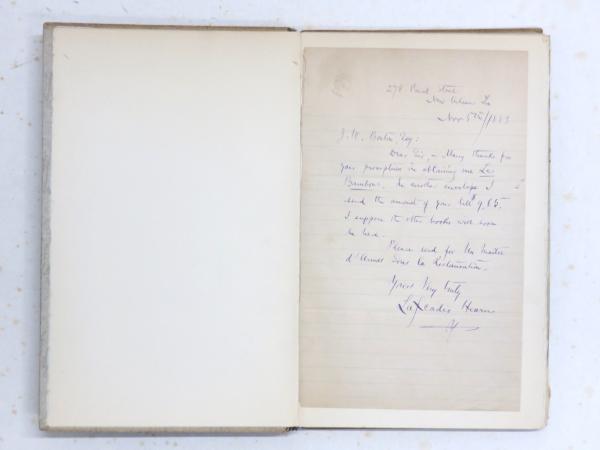 278 Canal Street
New Orleans La
Nov 5th/1883
J. W. Bouton, Esq:
Dear Sir, – Many thanks for
your promptness in obtaining me Les
Bambous. In another envelope I
send the amount of your bill $9.65.
I suppose the other books will soon
be here.
Please send for Un Maitre
d'Armes Sous la Restauration.
Yours Very truly
Lafcadio Hearn